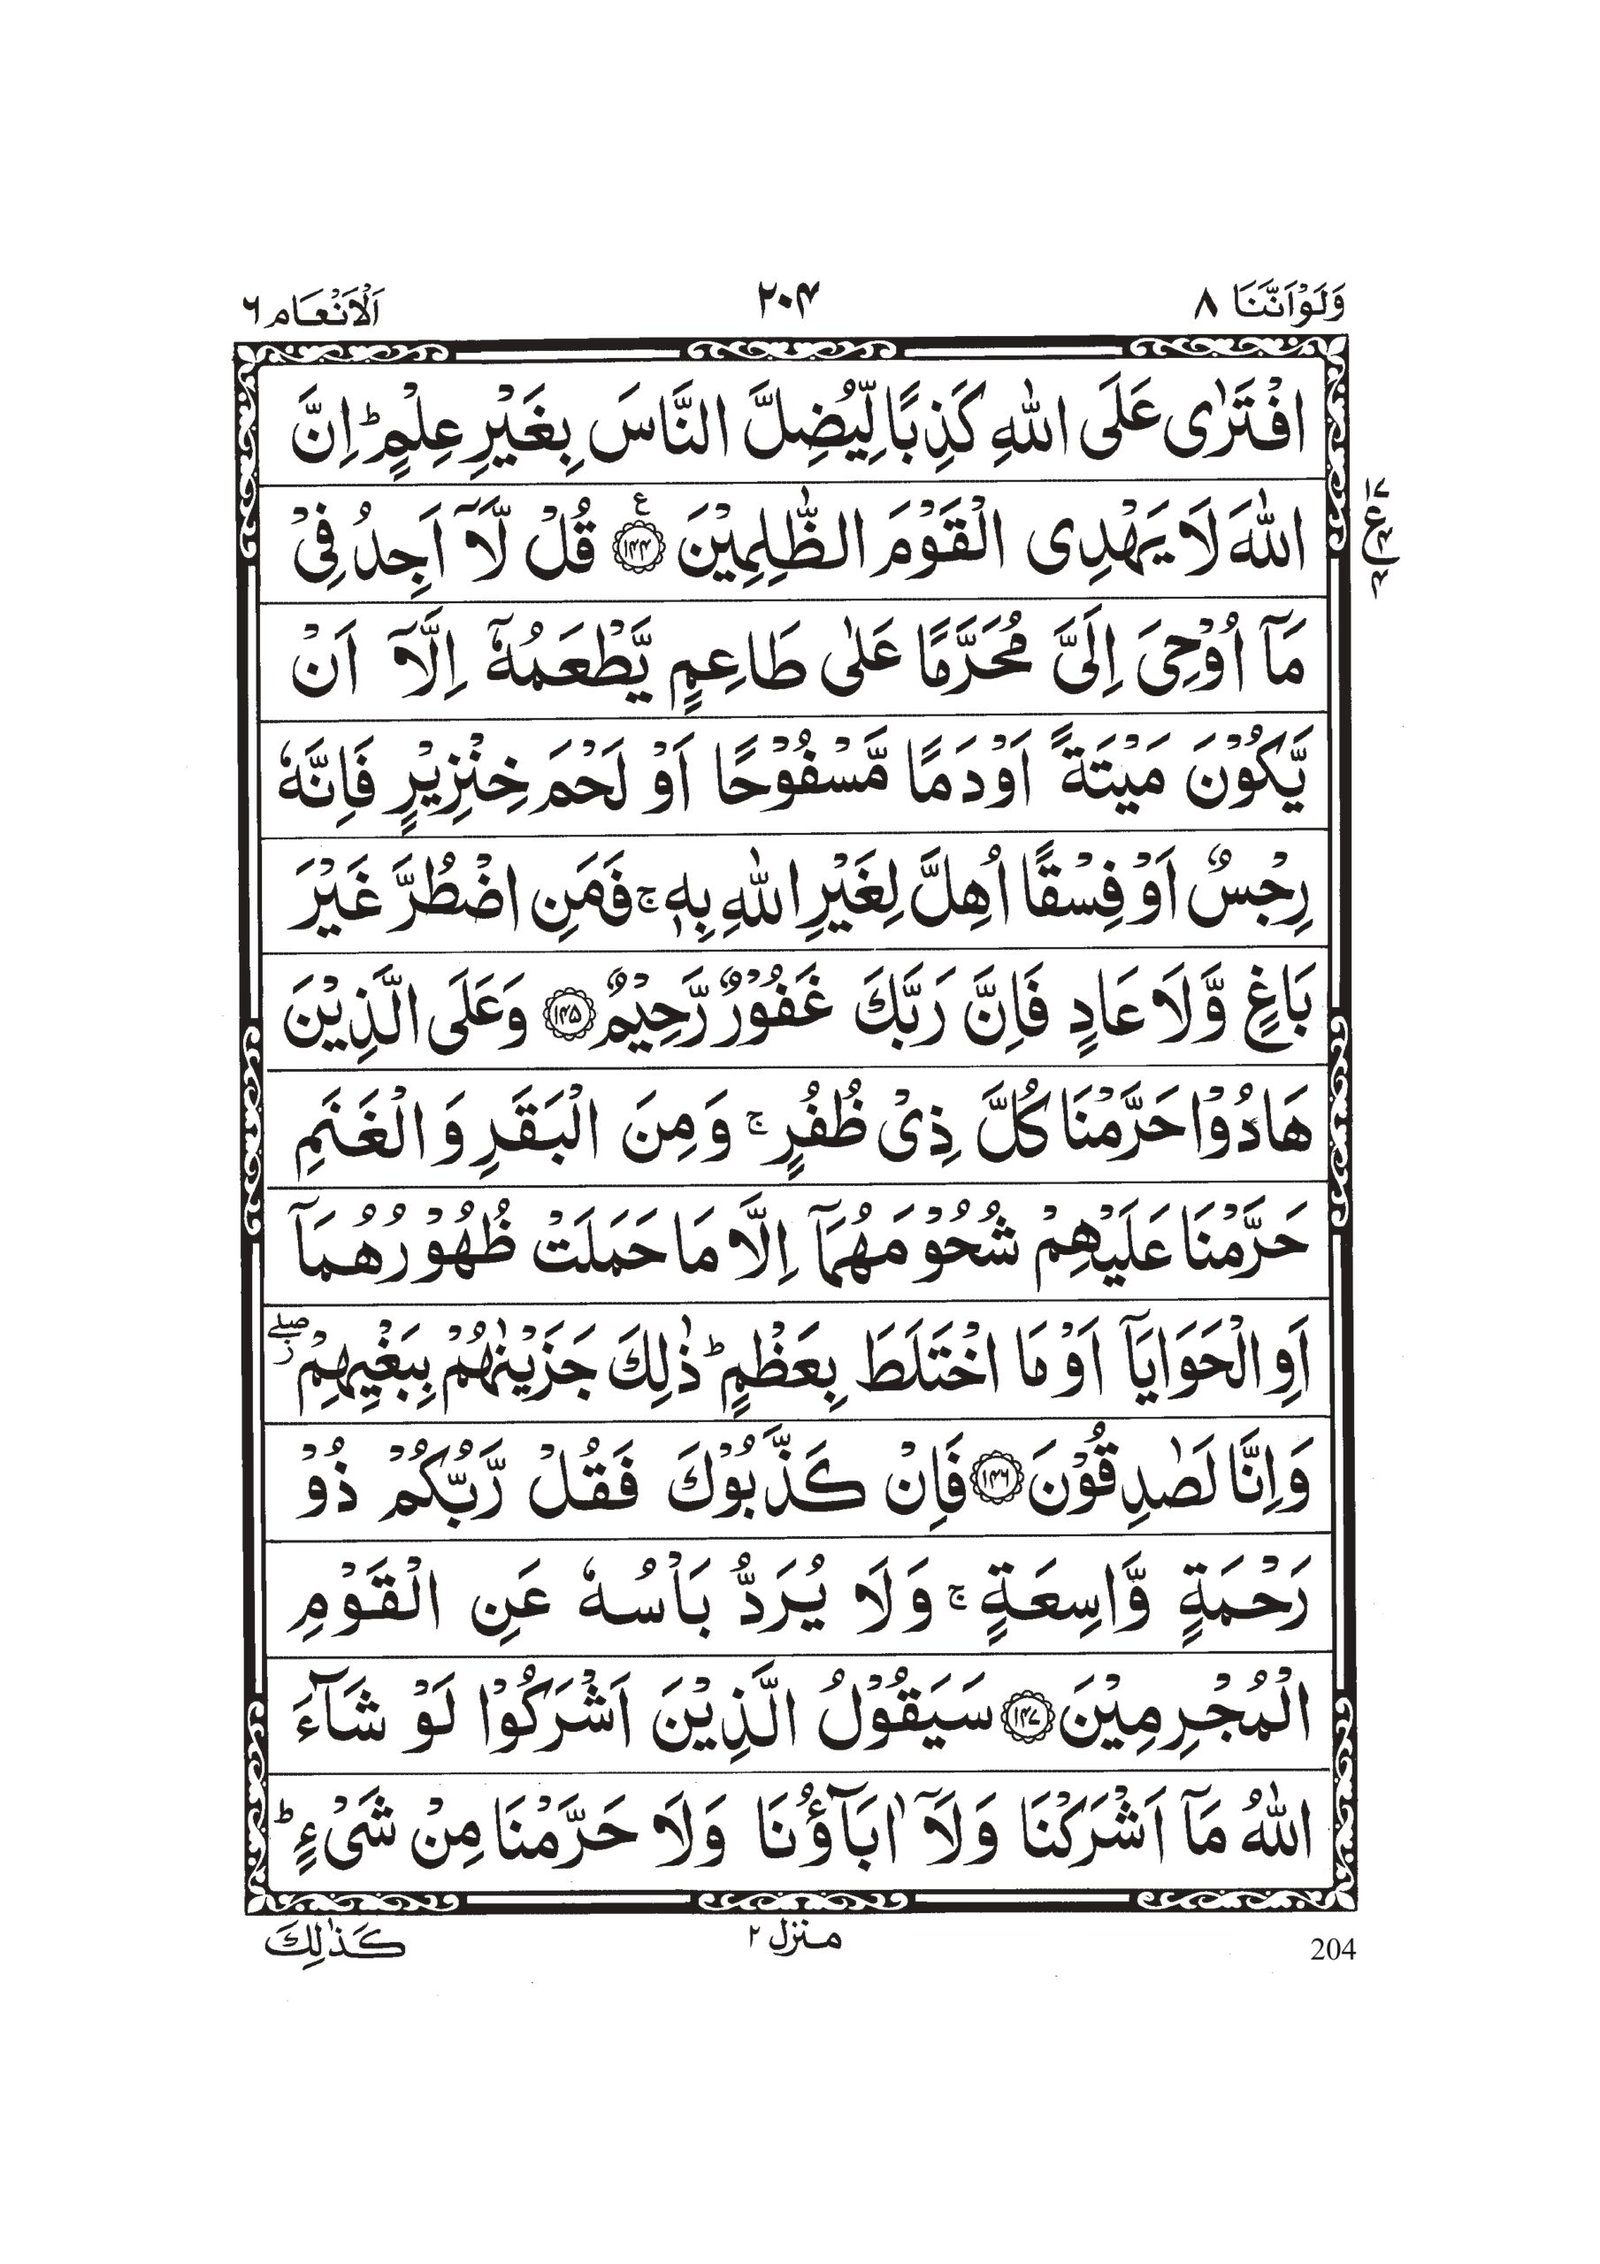 وَلَوْاَنَّنَا ۸
۲۰۴
اَلْاَنْعَام ٦
افْتَرٰى عَلَى اللّٰهِ كَذِبًا لِّيُضِلَّ النَّاسَ بِغَيْرِ عِلْمٍ ؕ اِنَّ
اللّٰهَ لَا يَهْدِى الْقَوْمَ الظّٰلِمِيْنَ ﴿۱۴۴﴾ ع قُلْ لَّاۤ اَجِدُ فِىْ
مَاۤ اُوْحِىَ اِلَىَّ مُحَرَّمًا عَلٰى طَاعِمٍ يَّطْعَمُهٗۤ اِلَّاۤ اَنْ
يَّكُوْنَ مَيْتَةً اَوْ دَمًا مَّسْفُوْحًا اَوْ لَحْمَ خِنْزِيْرٍ فَاِنَّهٗ
رِجْسٌ اَوْ فِسْقًا اُهِلَّ لِغَيْرِ اللّٰهِ بِهٖ ۚ فَمَنِ اضْطُرَّ غَيْرَ
بَاغٍ وَّلَا عَادٍ فَاِنَّ رَبَّكَ غَفُوْرٌ رَّحِيْمٌ ﴿۱۴۵﴾ وَعَلَى الَّذِيْنَ
هَادُوْا حَرَّمْنَا كُلَّ ذِىْ ظُفُرٍ ۚ وَمِنَ الْبَقَرِ وَالْغَنَمِ
حَرَّمْنَا عَلَيْهِمْ شُحُوْمَهُمَاۤ اِلَّا مَا حَمَلَتْ ظُهُوْرُهُمَاۤ
اَوِ الْحَوَايَاۤ اَوْ مَا اخْتَلَطَ بِعَظْمٍ ؕ ذٰلِكَ جَزَيْنٰهُمْ بِبَغْيِهِمْ ۖ ز
وَاِنَّا لَصٰدِقُوْنَ ﴿۱۴۶﴾ فَاِنْ كَذَّبُوْكَ فَقُلْ رَّبُّكُمْ ذُوْ
رَحْمَةٍ وَّاسِعَةٍ ۚ وَلَا يُرَدُّ بَاْسُهٗ عَنِ الْقَوْمِ
الْمُجْرِمِيْنَ ﴿۱۴۷﴾ سَيَقُوْلُ الَّذِيْنَ اَشْرَكُوْا لَوْ شَآءَ
اللّٰهُ مَاۤ اَشْرَكْنَا وَلَاۤ اٰبَآؤُنَا وَلَا حَرَّمْنَا مِنْ شَىْءٍ ؕ
كَذٰلِكَ
منزل ۲
204